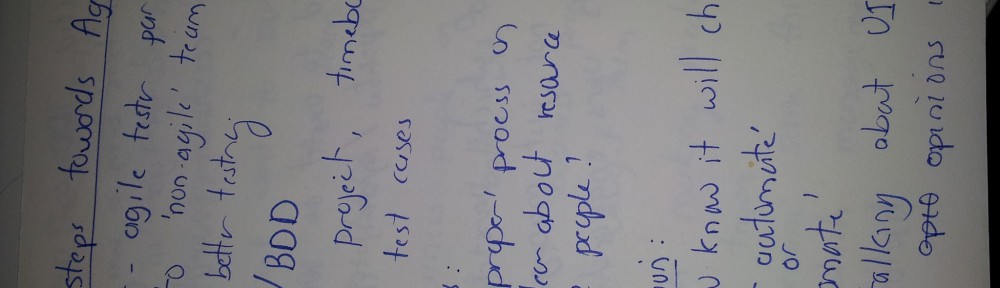 steps towards Ag
- agile tester par
o 'non-agile' team
better testing
/ BDD
project, timebo
test cases
s:
proper' process in
lear about resource
people!
w know it will ch
- automate'
or
mate'
alking about UI
opinions